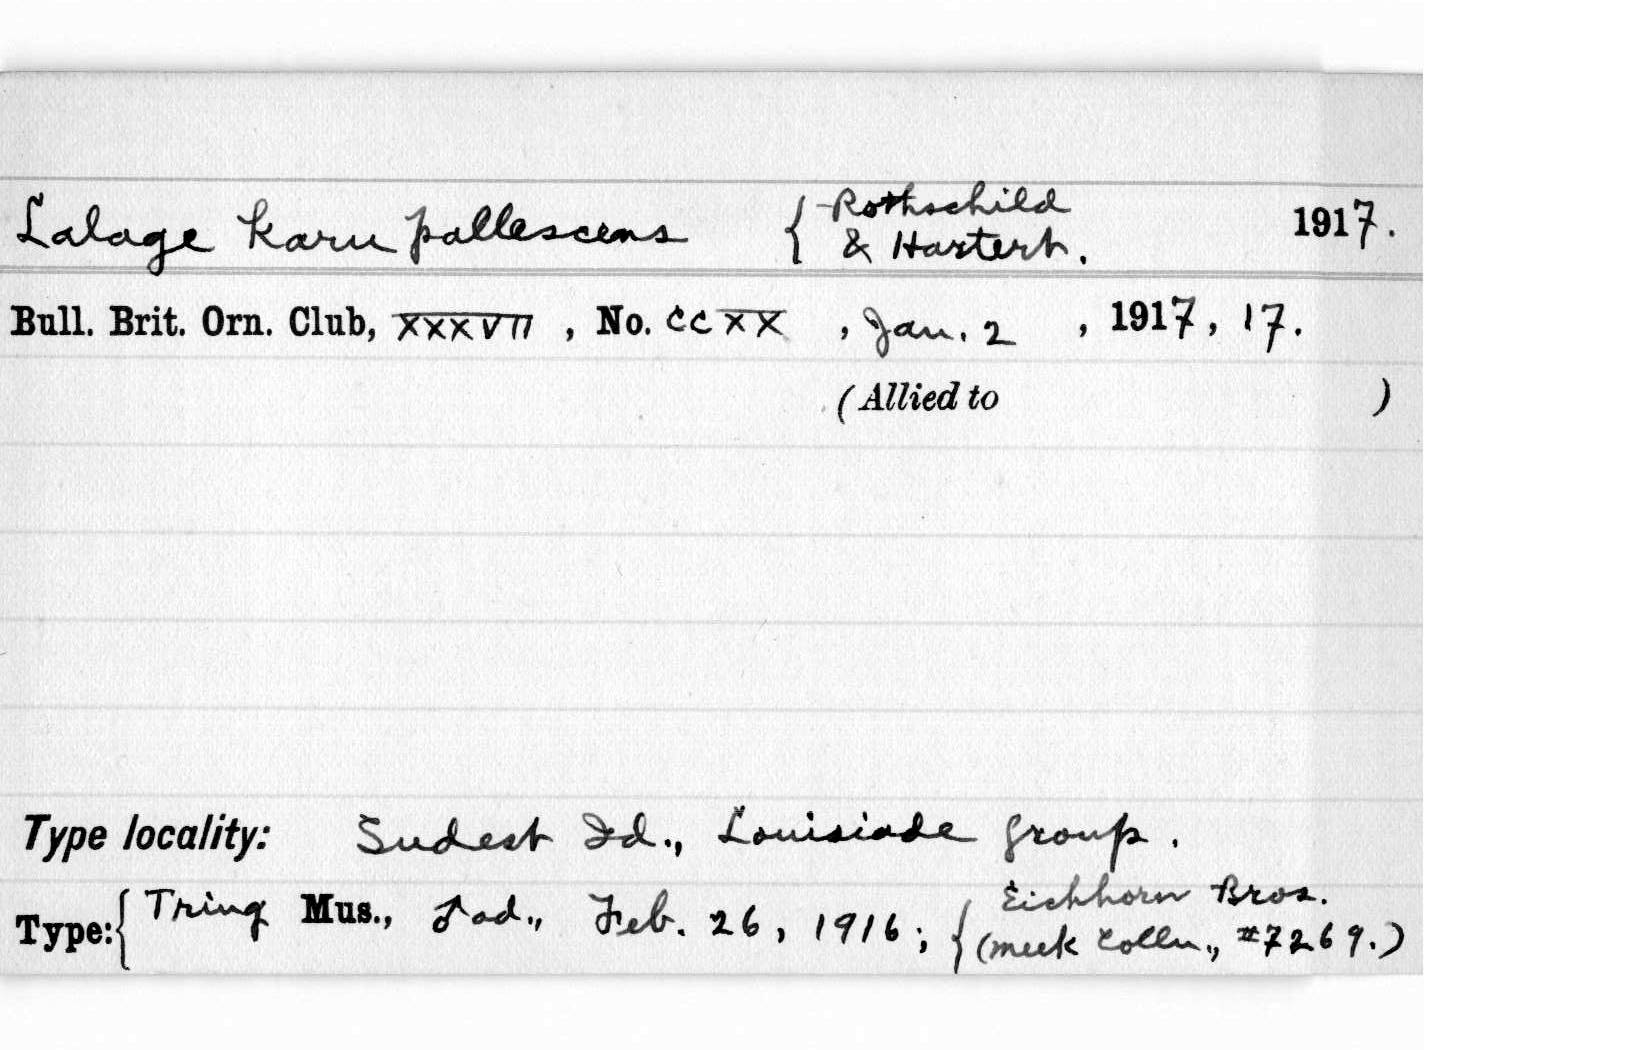 Lalage karu pallescens { Rothschild & Hartert. 1917.
Bull. Brit. Orn. Club, XXXVII, No. CCXX, Jan. 2, 1917, 17.
(Allied to )
Type locality: Sudest Id., Louisiade group.
Type: { Tring Mus., ♂ ad., Feb. 26, 1916; { Eichhorn Bros.
(Meek Colln., #7269.)